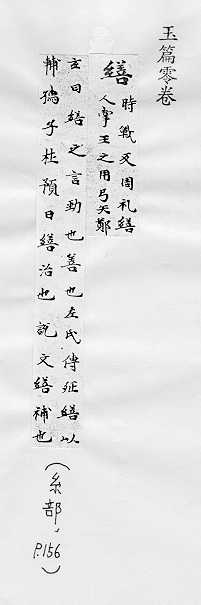 玉篇零卷
繕 時戰反周礼繕
人掌王之用弓矢鄭
玄曰繕之言勁也善也左氏傳征繕以
輔孺子杜預曰繕治也說文繕補也
(糸部, P.156)